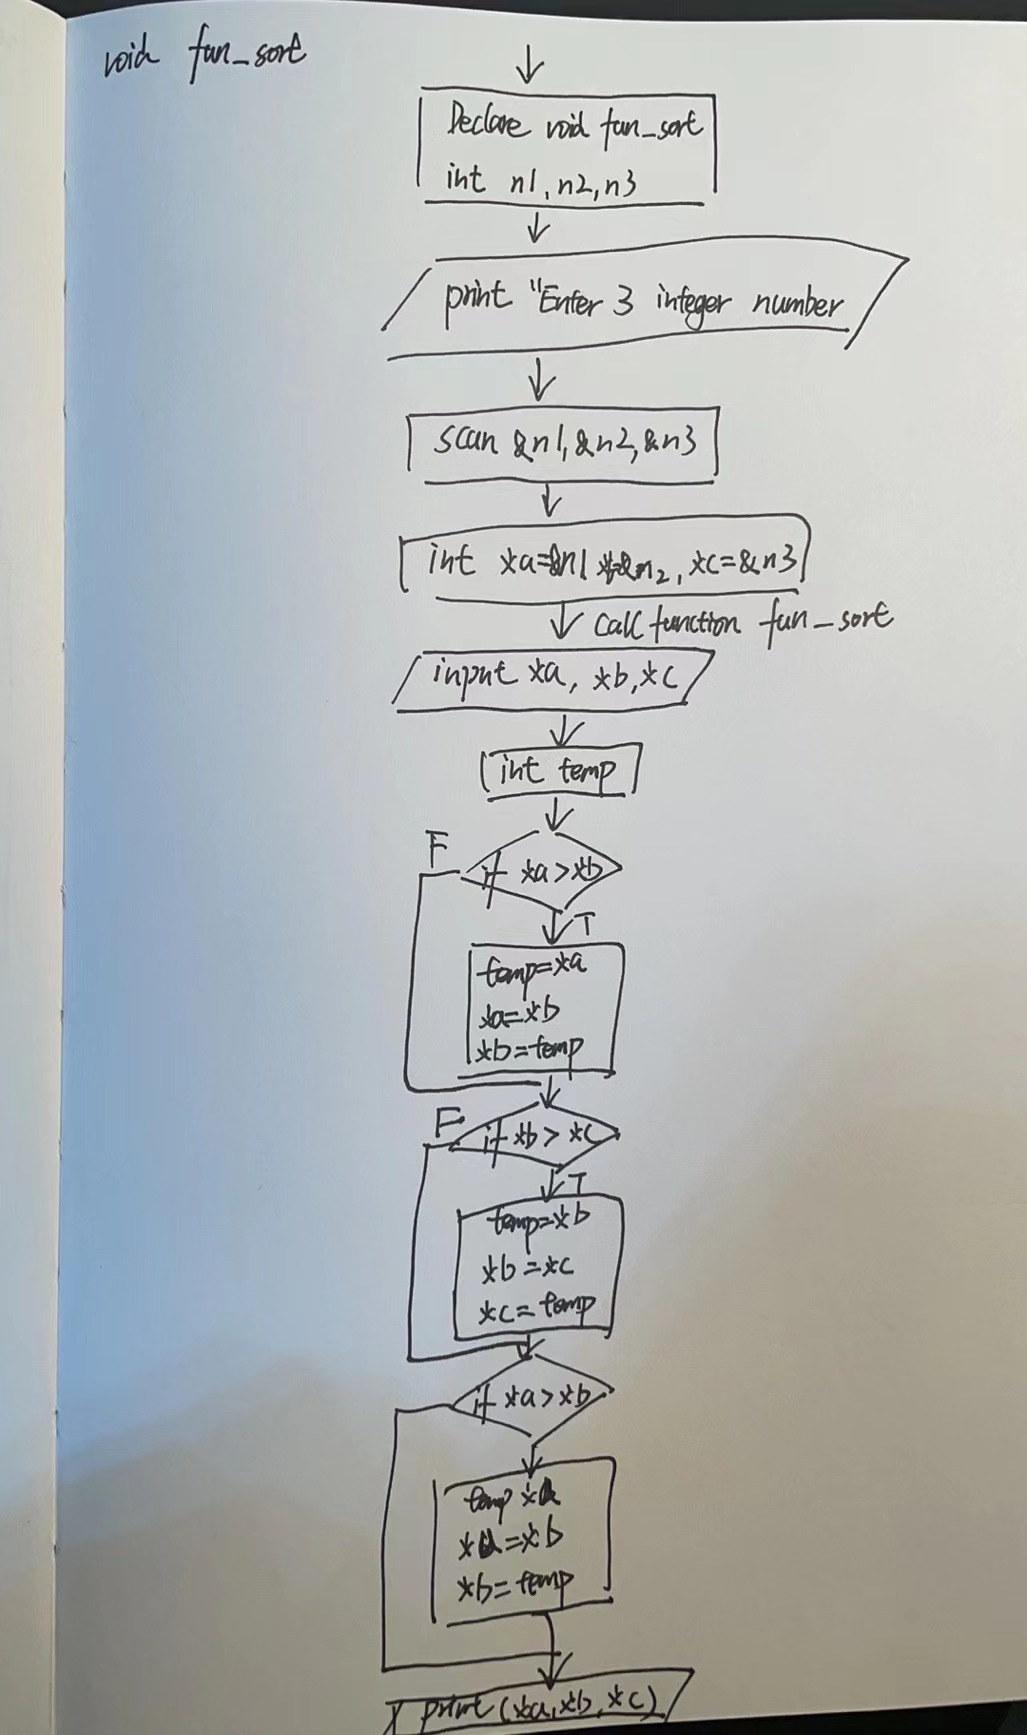 void fun_sort
Declare void fun_sort
int n1, n2, n3
print "Enter 3 integer number
scan &n1, &n2, &n3
int *a=&n1 *=&n2, *c=&n3
call function fun_sort
input *a, *b, *c
int temp
F
if *a > *b
T
temp=*a
*a=*b
*b=temp
F
if *b > *c
T
temp=*b
*b=*c
*c=temp
if *a > *b
temp *a
*a=*b
*b=temp
print (*a, *b, *c)